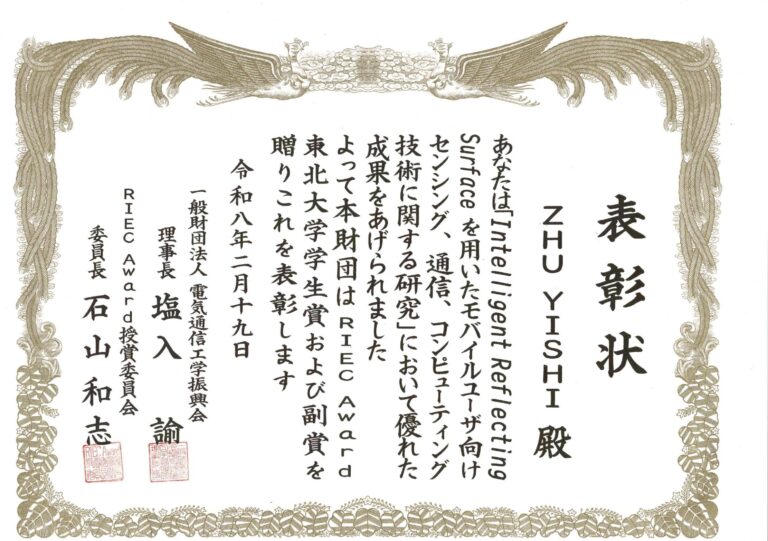 表彰状
ZHU YISHI 殿
あなたは「Intelligent Reflecting
Surface を用いたモバイルユーザ向け
センシング、通信、コンピューティング
技術に関する研究」において優れた
成果をあげられました
よって本財団はRIEC Award
東北大学学生賞および副賞を
贈りこれを表彰します
令和八年二月十九日
一般財団法人 電気通信工学振興会
理事長 塩入 諭
RIEC Award授賞委員会
委員長 石山和志